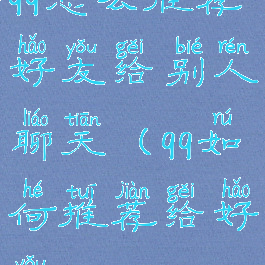 qq怎么推荐
hǎo yǒu gěi bié rén
好友给别人
liáo tiān rú
聊天（qq如
hé tuī jiàn gěi hǎo
何推荐给好
yǒu